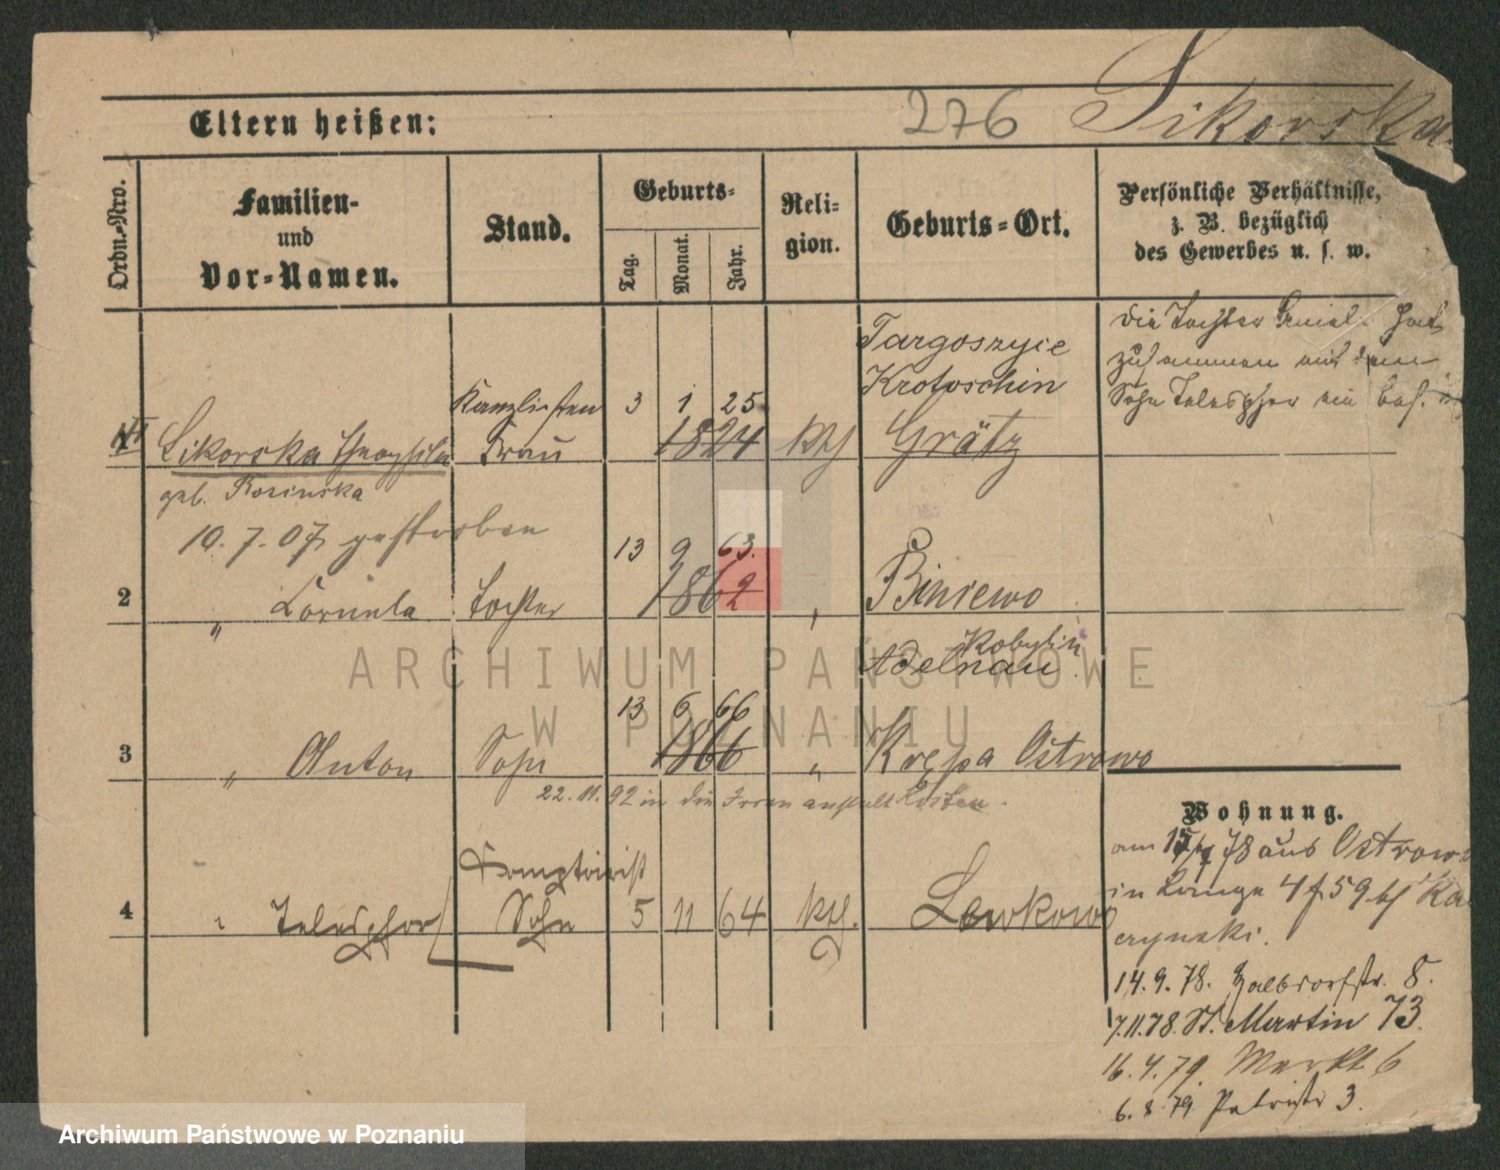 276 Sikorska
Eltern heißen:
Ordn.-Nro.
Familien-
und
Vor-Namen.
Stand.
Geburts-
Tag.
Monat.
Jahr.
Reli-
gion.
Geburts-Ort.
Persönliche Verhältnisse,
z. B. bezüglich
des Gewerbes u. s. w.
Die Tochter hat
zusammen mit dem
Sohn Telesphor ein
Targoszyce
Kanzlisten 3 1 25 Krotoschin
Sikorska Theophila Frau 1824 kth Grätz
geb. Rosinska
10.7.07 gestorben
13 9 63.
2 " Cornela Tochter 1862 " Biniewo
Kobylin
Adelnau
13 6 66
3 " Anton Sohn 1866 " Krępa Ostrowo
22.11.92 in die Irrenanstalt Kosten.
Comptoirist
4 " Telesphor Sohn 5 11 64 kth. Lewkowo
Wohnung.
am 15/7 78 aus Ostrowo
in Lange 4 f. 59 b/ Ka
czynski.
14.9.78. Halbdorfstr. 8.
7.11.78. St. Martin 73.
16.4.79. Markt 6
6.8.79 Petristr 3.
ARCHIWUM PAŃSTWOWE
W POZNANIU
Archiwum Państwowe w Poznaniu